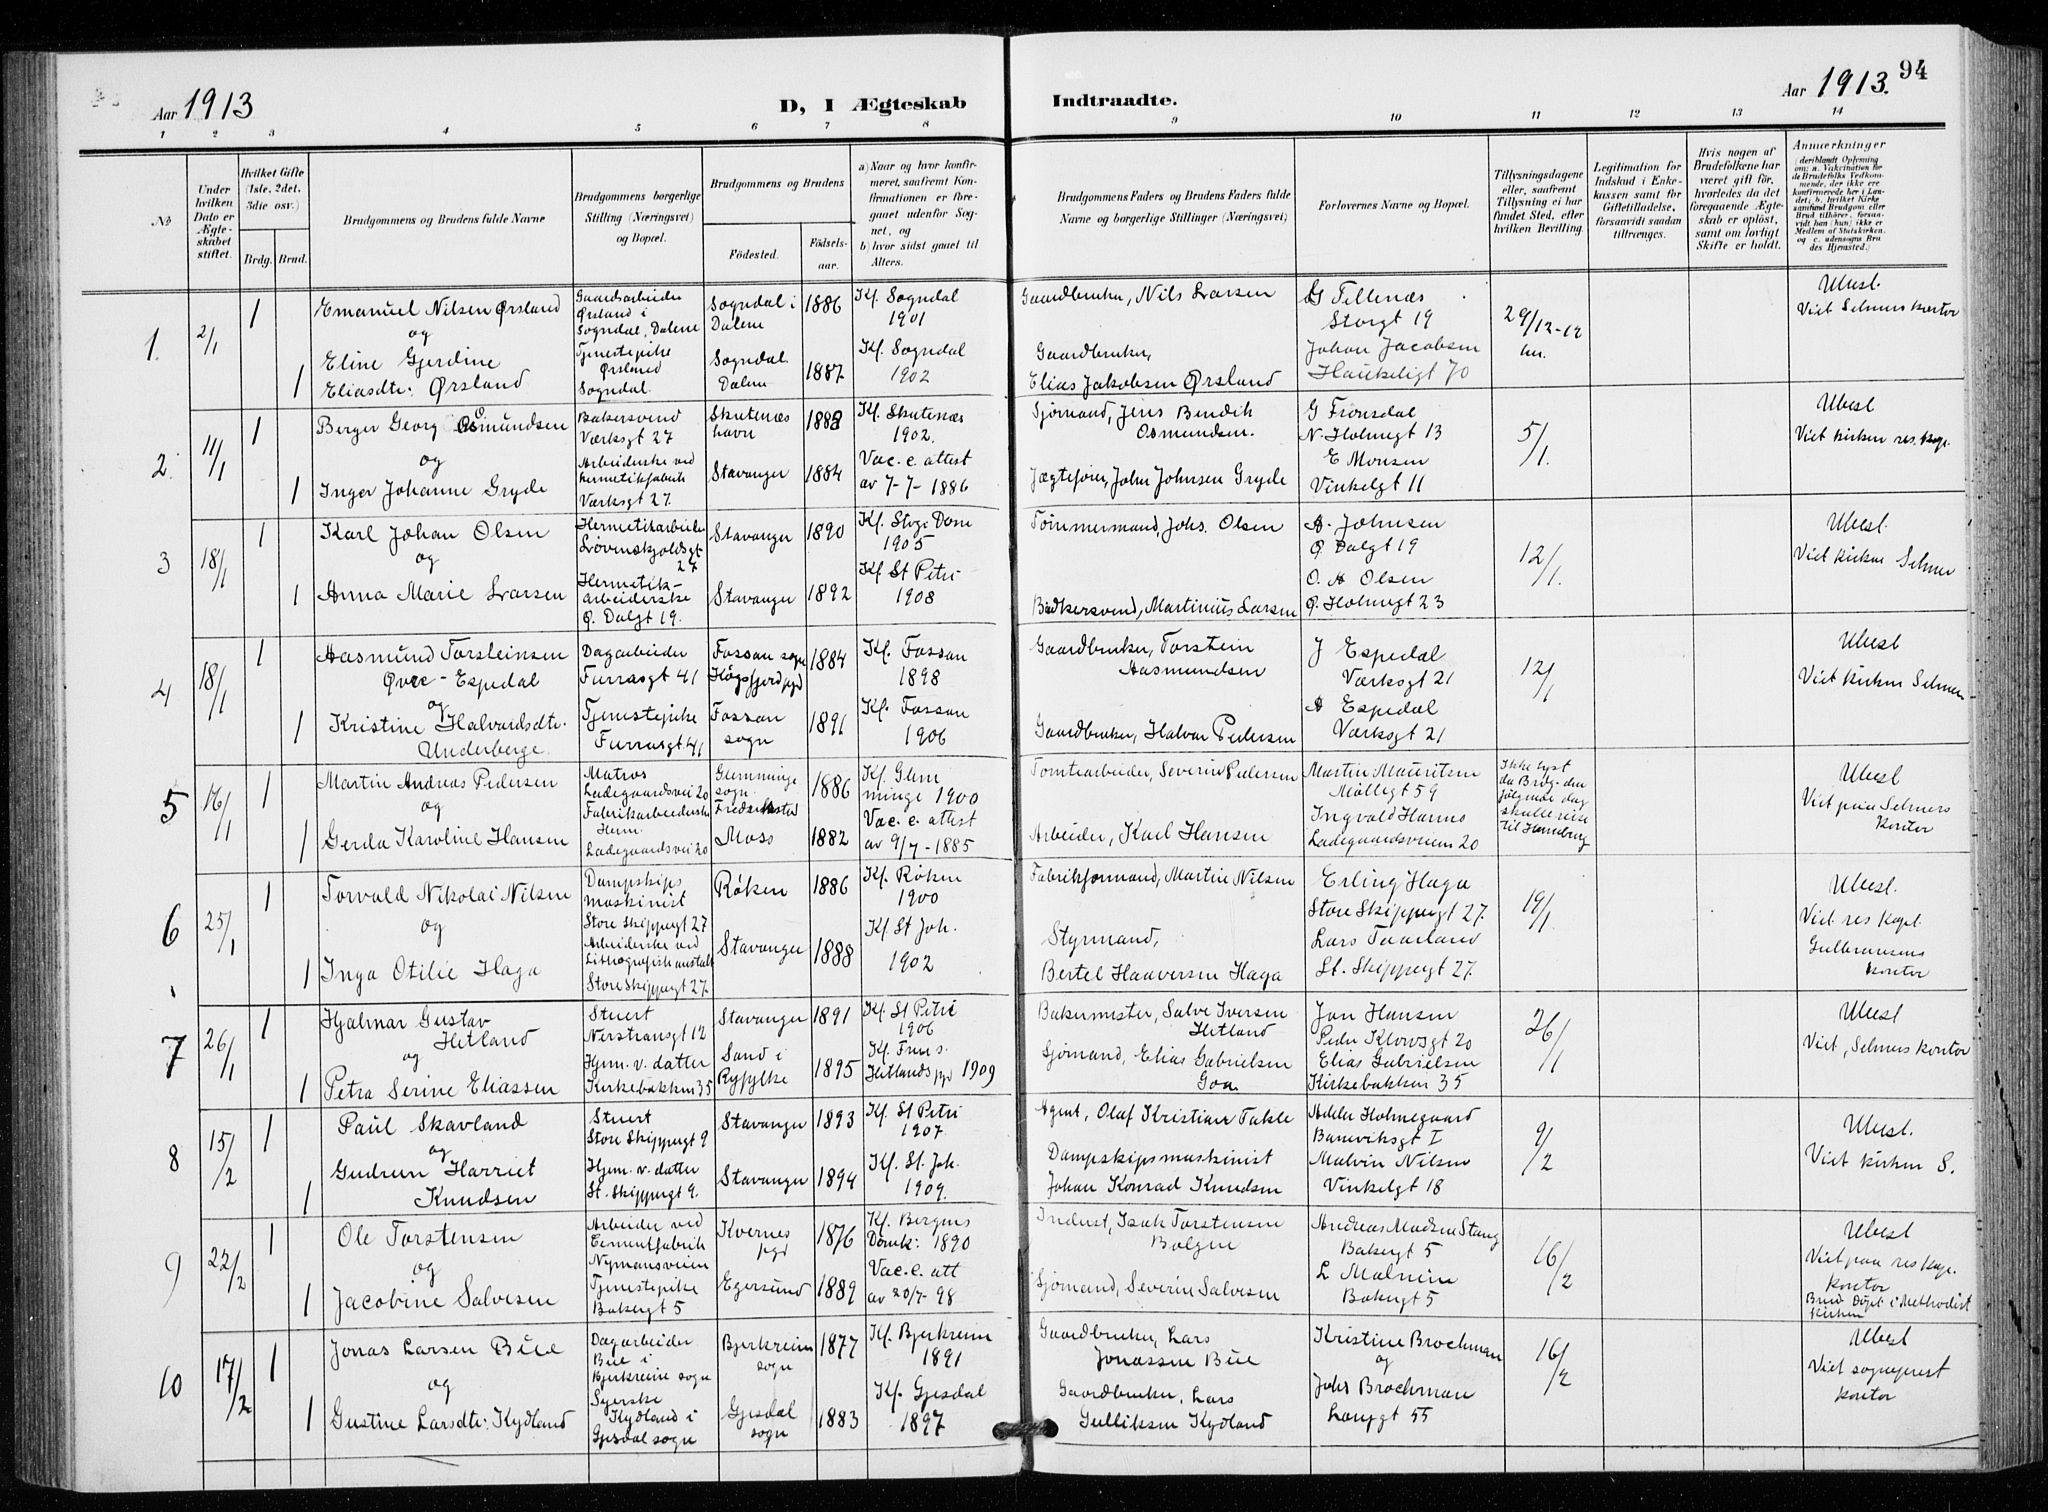 Aar 1913
D, I Ægteskab
Indtraadte.
Aar 1913.
94
1 2 3 4 5 6 7 8 9 10 11 12 13 14
No
Under hvilken Dato er Ægteskabet stiftet.
Hvilket Gifte (1ste, 2det, 3die osv.)
Brdg. Brud.
Brudgommens og Brudens fulde Navne
Brudgommens borgerlige Stilling (Næringsvei) og Bopæl.
Brudgommens og Brudens
Fødested.
Fødselsaar.
a) Naar og hvor konfirmeret, saafremt Konfirmationen er foregaaet udenfor Sognet, og
b) hvor sidst gaaet til Alters.
Brudgommens Faders og Brudens Faders fulde Navne og borgerlige Stillinger (Næringsvei)
Forlovernes Navne og Bopæl.
Tillysningsdagene eller, saafremt Tillysning ei har fundet Sted, efter hvilken Bevilling.
Legitimation for Indskud i Enkekassen samt for Giftetilladelse, forsaavidt saadan tiltrænges.
Hvis nogen af Brudefolkene har været gift før, hvorledes da det foregaaende Ægteskab er opløst, samt om lovligt Skifte er holdt.
Anmærkninger
(deriblandt Oplysning om: a. Vakcination for de Brudefolks Vedkommende, der ikke ere konfirmerede her i Landet; b. hvilket Kirkesamfund Brudgom eller Brud tilhører, forsaavidt han (hun) ikke er Medlem af Statskirken, og c. udensogns Brudes Hjemsted.)
1.
2/1
1
Emanuel Nilsen Ørsland
og
Gaardsarbeider
Ørsland i
Sogndal, Dalene
Sogndal i
Dalene
1886
Kf. Sogndal
1901
Gaardbruker, Nils Larsen
G Tellenæs
Storgt 19
29/12-12
Ubest.
Viet Selmers kontor
1
Eline Gjerdine
Eliasdtr. Ørsland
Tjenestepike
Ørsland
Sogndal.
Sogndal
Dalene
1887
Kf. Sogndal
1902
Gaardbruker,
Elias Jakobsen Ørsland
Johan Jacobsen
Haukeligt 70
2.
11/1
1
Berger Georg Osmundsen
og
Bakersvend
Værksgt 27
Skutenæs
havn
Kf. Skutenæs
1902.
Sjømand, Jens Bendik
Osmundsen.
G Fronsdal
N. Holmegt 13
5/1.
Ubest
Viet kirken res. kap.
1
Inger Johanne Gryde
Arbeiderske ved
hermetikfabrik
Værksgt 27.
Stavanger
1884
Vac. c. attest
av 7-7-1886
Jægtefører, John Johnsen Gryde
E Monsen
Vinkelgt 11
3
18/1
1
Karl Johan Olsen
og
Hermetikarbeider
Løvenskjoldsgt
27
Stavanger
1890
Kf. Stvg. Dom
1905
Tømmermand, Johs. Olsen
A. Johnsen
Ø Dalgt 19
12/1.
Ubest.
Viet kirken Selmer
1
Anna Marie Larsen
Hermetik-
arbeiderske
Ø. Dalgt 19.
Stavanger
1892
Kf St Petri
1908
Bødkersvend, Martinius Larsen
O. A Olsen
Ø. Holmegt 23
4
18/1
1
Aasmund Torsteinsen
Øvre-Espedal
og
Dagarbeider
Furrasgt 41
Fossan sogn
Høgsfjord pgd
1884
Kf. Fossan
1898
Gaardbruker, Torstein
Aasmundsen
J Espedal
Værksgt 21
12/1
Ubest
Viet kirken Selmer
1
Kristine Halvardsdtr.
Underberge.
Tjenestepike
Furrasgt 41
Fossan
sogn
1891
Kf. Fossan
1906
Gaardbruker, Halvar Pedersen
A Espedal
Værksgt 21
5
16/1
1
Martin Andreas Pedersen
og
Matros
Ladegaardsvei 20
Glemminge
sogn.
Fredrikstad
1886
Kf. Glem
minge 1900
Tomtearbeider, Severin Pedersen
Martin Mauritsen
Møllegt 59
Ikke lyst
da Brdg. den
følgende dag
skulle reise
til Hamburg
Ubest
Viet paa Selmers
kontor
1
Gerda Karoline Hansen
Fabrikarbeiderske
Herm.
Ladegaardsvei 20
Moss
1882
Vac. c. attest
av 9/7-1885
Arbeider, Karl Hansen
Ingvald Hanno
Ladegaardsveien 20
6
25/1
1
Torvald Nikolai Nilsen
og
Dampskips
maskinist
Store Skippergt 27
Røken
1886
Kf. Røken
1900
Fabrikformand, Martin Nilsen
Erling Haga
Store Skippergt 27.
19/1.
Ubest.
Viet res kapel.
Gulbransens
kontor
1
Inga Otilie Haga
Arbeiderske ved
Lithografisk anstalt
Store Skippergt 27.
Stavanger
1888
Kf St Joh.
1902
Styrmand,
Bertel Haaversen Haga
Lars Taarland
St. Skippergt 27.
7
26/1
1
Hjalmar Gustav
Hetland
og
Stuert
Nerstransgt 12
Stavanger
1891
Kf. St Petri
1906
Bakermester, Salve Iversen
Hetland
Jan Hansen
Peder Klowsgt 20
26/1
Ubest
Viet, Selmers kontor
1
Petra Serine Eliassen
Hjem. v. datter
Kirkebakken 35
Sand i
Ryfylke
1895
Kf. Frues.
Hetlands pgd 1909
Sjømand, Elias Gabrielsen
Goa
Elias Gabrielsen
Kirkebakken 35
8
15/2
1
Paul Skavland
og
Stuert
Store Skippergt 9
Stavanger
1893
Kf. St Petri
1907.
Agent, Olaf Kristian Takle
Adler Holmegaard
Banevigsgt 1
9/2
Ubest.
Viet kirken S.
1
Gudrun Harriet
Knudsen
Hjem. v. datter
St. Skippergt 9.
Stavanger
1894
Kf. St. Joh.
1909.
Dampskipsmaskinist
Johan Konrad Knudsen
Malvin Nilsen
Vinkelgt 18
9
22/2
1
Ole Torstensen
og
Arbeider ved
Cementfabrik
Nymansveien
Kvernes
pgd
1876
Kf. Bergens
Domk: 1890
Inderst, Isak Torstensen
Bolgen
Andreas Madsen Stang
Bakergt 5
16/2
Ubest
Viet paa res kap.
kontor
Brud Døpt i Methodist
kirken
1
Jacobine Salvesen
Tjenestepike
Bakergt 5
Egersund
1889
Vac. c. att
av 20/7-98
Sjømand, Severin Salvesen
L Malmin
Bakergt 5
10
17/2
1
Jonas Larsen Bue
og
Dagarbeider
Bue i
Bjerkreim sogn
Bjerkreim
sogn
1877
Kf. Bjerkreim
1891
Gaardbruker, Lars
Jonassen Bue
Kristine Brochman
og
16/2
Ubest
Viet sogneprest
kontor
1
Gustine Larsdtr. Kydland
Syerske
Kydland i
Gjesdal sogn
Gjesdal
sogn
1883
Kf. Gjesdal
1897
Gaardbruker, Lars
Gulliksen Kydland
Johs Brochman
Langgt 55